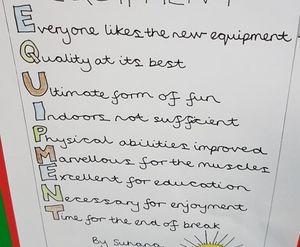 EQUIPMENT
Everyone likes the new equipment
Quality at its best
Ultimate form of fun
Indoors not sufficient
Physical abilities improved
Marvellous for the muscles
Excellent for education
Necessary for enjoyment
Time for the end of break
By Suhana